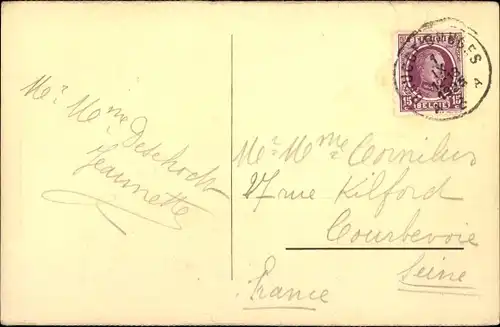 Mr. Mme Deschoch
Jeannette
15 BELGIE 15
Mr. Mme Cornilus
27 rue Kilford
Courbevoie
Seine
France